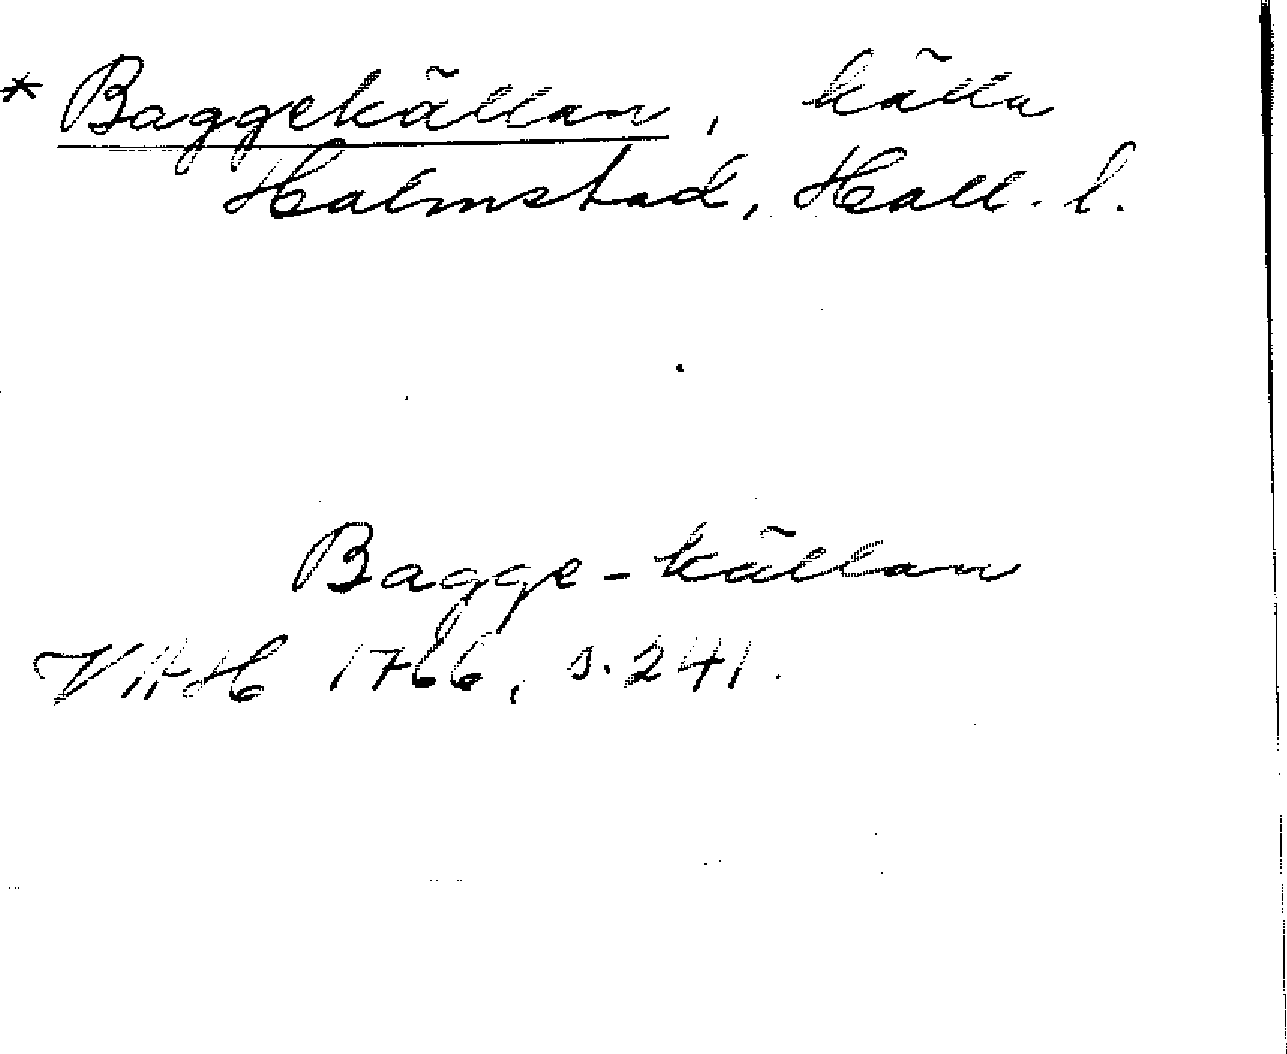 * Baggekällan, källa
Halmstad, Hall. l.
Bagge-källan
VAH 1766, s. 241.